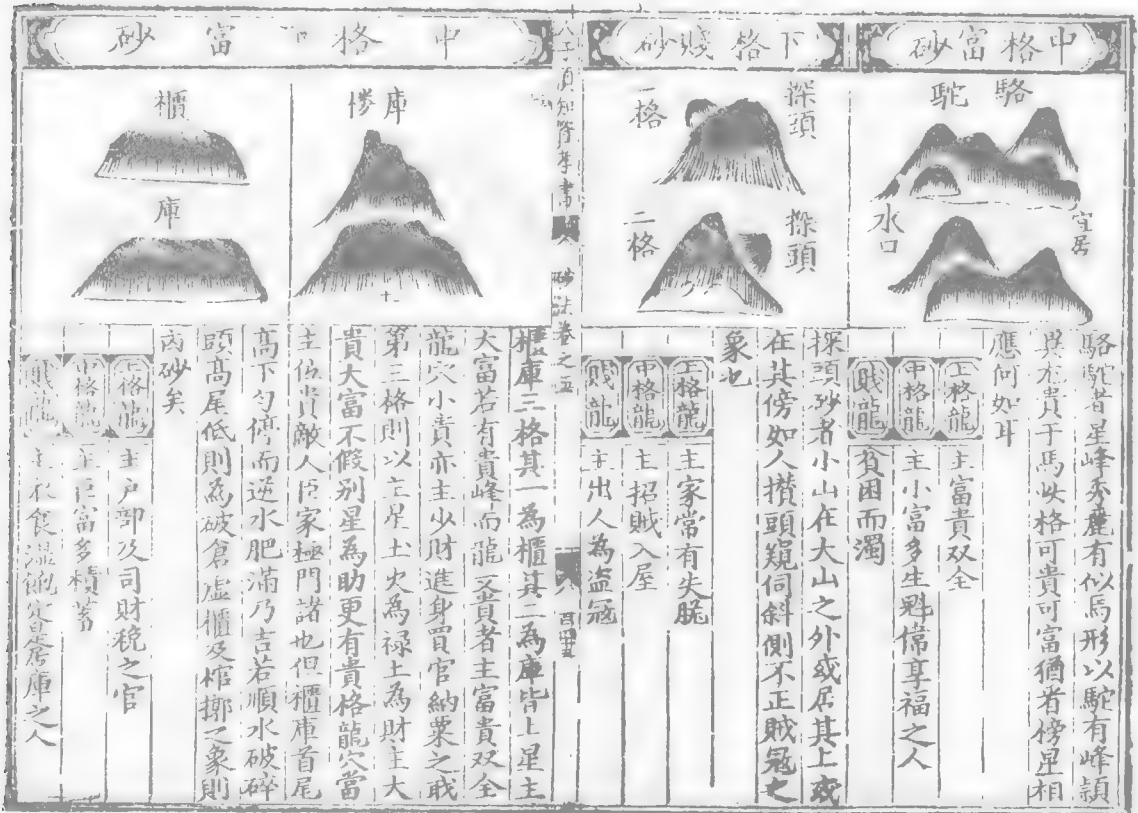 中格富砂
駱駝
宜居
水口
駱駝者星峰秀麗有似馬形以駝有峰
異尤貴于馬此格可貴可富猶者傍星相
應何如耳
上格龍 主富貴双全
中格龍 主小富多生魁偉享福之人
賎龍 貧困而濁
下格賤砂
探頭 一格
探頭 二格
探頭砂者小山在大山之外或居其上或
在其傍如人攢頭窺伺斜側不正賊冦之
象也
上格龍 主家常有失脫
中格龍 主招賊入屋
賎龍 主出人為盗冦
人子須知資孝書 砂法卷之五
中格富砂
庫
櫃
庫
櫃庫三格其一為櫃其二為庫皆土星主
大富若有貴峰而龍又貴者主富貴双全
龍穴小貴亦主少財進身買官納粟之職
第三格則以主星土火為禄土為財主大
貴大富不假别星為助更有貴格龍穴當
主位貴敵人臣家極門諸也但櫃庫首尾
高下匀停而逆水肥滿乃吉若順水破碎
頭高尾低則為破倉虚櫃及棺槨之象則
丙砂矣
上格龍 主户部及司財税之官
中格龍 主巨富多積蓄
賎龍 主衣食温飽守庫之人